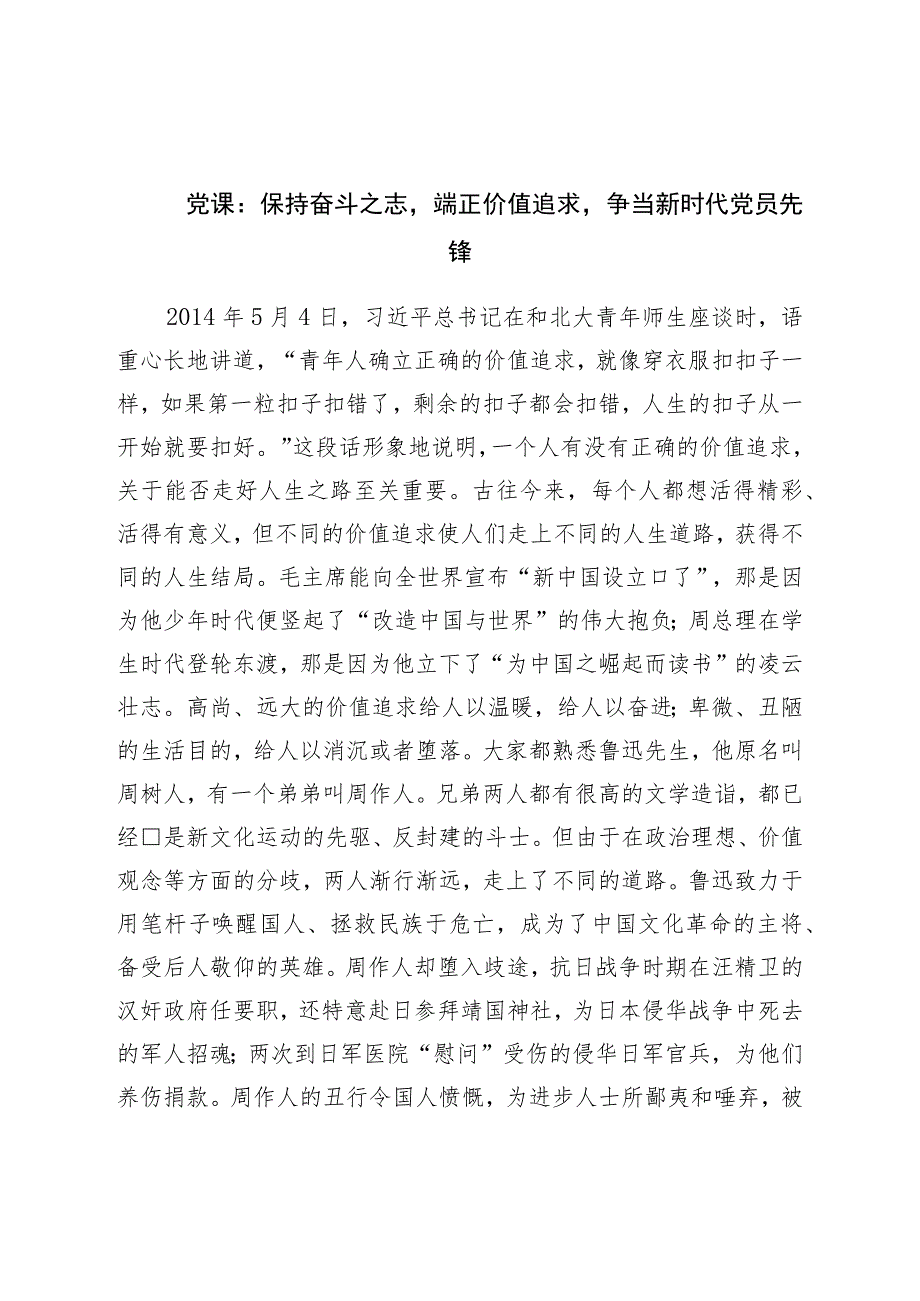 党课：保持奋斗之志，端正价值追求，争当新时代党员先
锋
2014年5月4日，习近平总书记在和北大青年师生座谈时，语
重心长地讲道，“青年人确立正确的价值追求，就像穿衣服扣扣子一
样，如果第一粒扣子扣错了，剩余的扣子都会扣错，人生的扣子从一
开始就要扣好。”这段话形象地说明，一个人有没有正确的价值追求，
关于能否走好人生之路至关重要。古往今来，每个人都想活得精彩、
活得有意义，但不同的价值追求使人们走上不同的人生道路，获得不
同的人生结局。毛主席能向全世界宣布“新中国设立口了”，那是因
为他少年时代便竖起了“改造中国与世界”的伟大抱负；周总理在学
生时代登轮东渡，那是因为他立下了“为中国之崛起而读书”的凌云
壮志。高尚、远大的价值追求给人以温暖，给人以奋进；卑微、丑陋
的生活目的，给人以消沉或者堕落。大家都熟悉鲁迅先生，他原名叫
周树人，有一个弟弟叫周作人。兄弟两人都有很高的文学造诣，都已
经□是新文化运动的先驱、反封建的斗士。但由于在政治理想、价值
观念等方面的分歧，两人渐行渐远，走上了不同的道路。鲁迅致力于
用笔杆子唤醒国人、拯救民族于危亡，成为了中国文化革命的主将、
备受后人敬仰的英雄。周作人却堕入歧途，抗日战争时期在汪精卫的
汉奸政府任要职，还特意赴日参拜靖国神社，为日本侵华战争中死去
的军人招魂；两次到日军医院“慰问”受伤的侵华日军官兵，为他们
养伤捐款。周作人的丑行令国人愤慨，为进步人士所鄙夷和唾弃，被